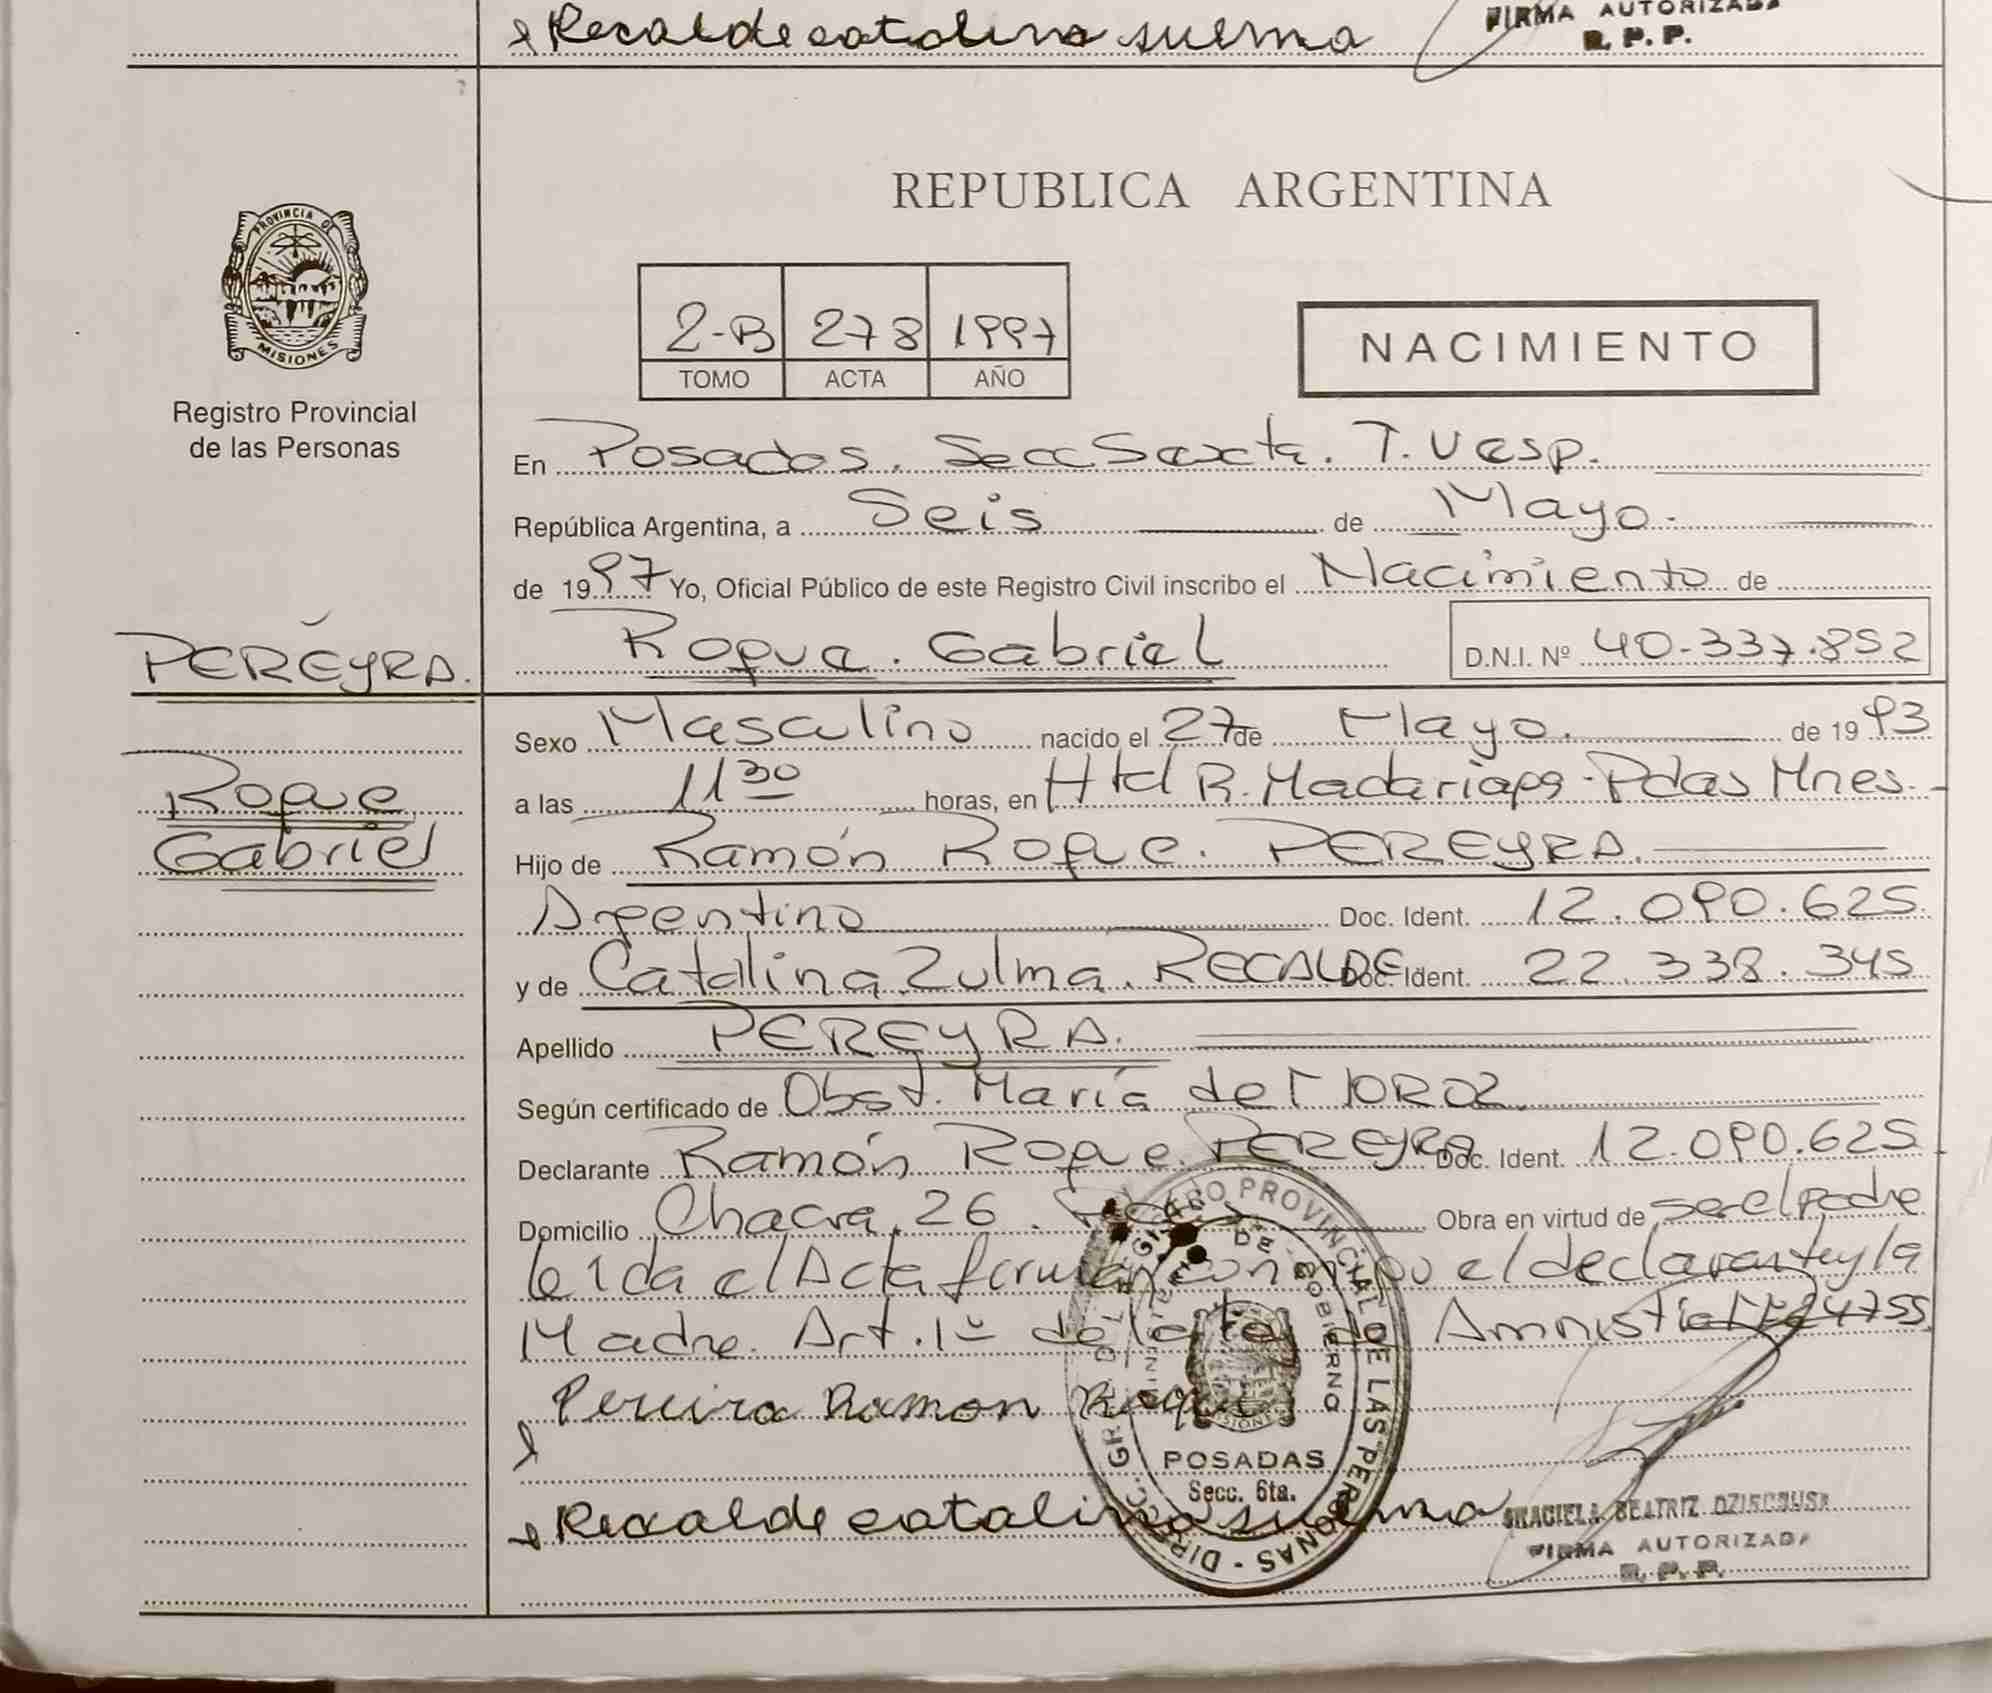 Recalde catalina suema
FIRMA AUTORIZADA
R. P. P.
PROVINCIA DE
MISIONES
Registro Provincial
de las Personas
REPUBLICA ARGENTINA
2-B 278 1997
TOMO ACTA AÑO
NACIMIENTO
En Posadas. Secc Sexta. T. Vesp.
República Argentina, a Seis de Mayo.
de 1997 Yo, Oficial Público de este Registro Civil inscribo el Nacimiento de
PEREYRA. Roque. Gabriel D.N.I. Nº 40.337.852
Sexo Masculino nacido el 27 de Mayo. de 1993
Roque
a las 11 30 horas, en Htal R. Madariaga - Pdas Mnes.
Gabriel
Hijo de Ramón Roque. PEREYRA.
Argentino Doc. Ident. 12.090.625.
y de Catalina Zulma. RECALDE Doc. Ident. 22.338.345
Apellido PEREYRA.
Según certificado de Obst. María de
Declarante Ramón Roque. PEREYRA Doc. Ident. 12.090.625.
Domicilio Chacra 26. Obra en virtud de ser el padre
leída el Acta firman el declarante y la
Madre. Art. 1º de la Ley de Amnistía Nº 24755.
Pereira Ramon Roque
Recalde catalina suema
DIRECC. GRAL. DEL REGISTRO PROVINCIAL DE LAS PERSONAS
DE GOBIERNO
MISIONES
POSADAS
Secc. 6ta.
GRACIELA BEATRIZ
FIRMA AUTORIZADA
R. P. P.